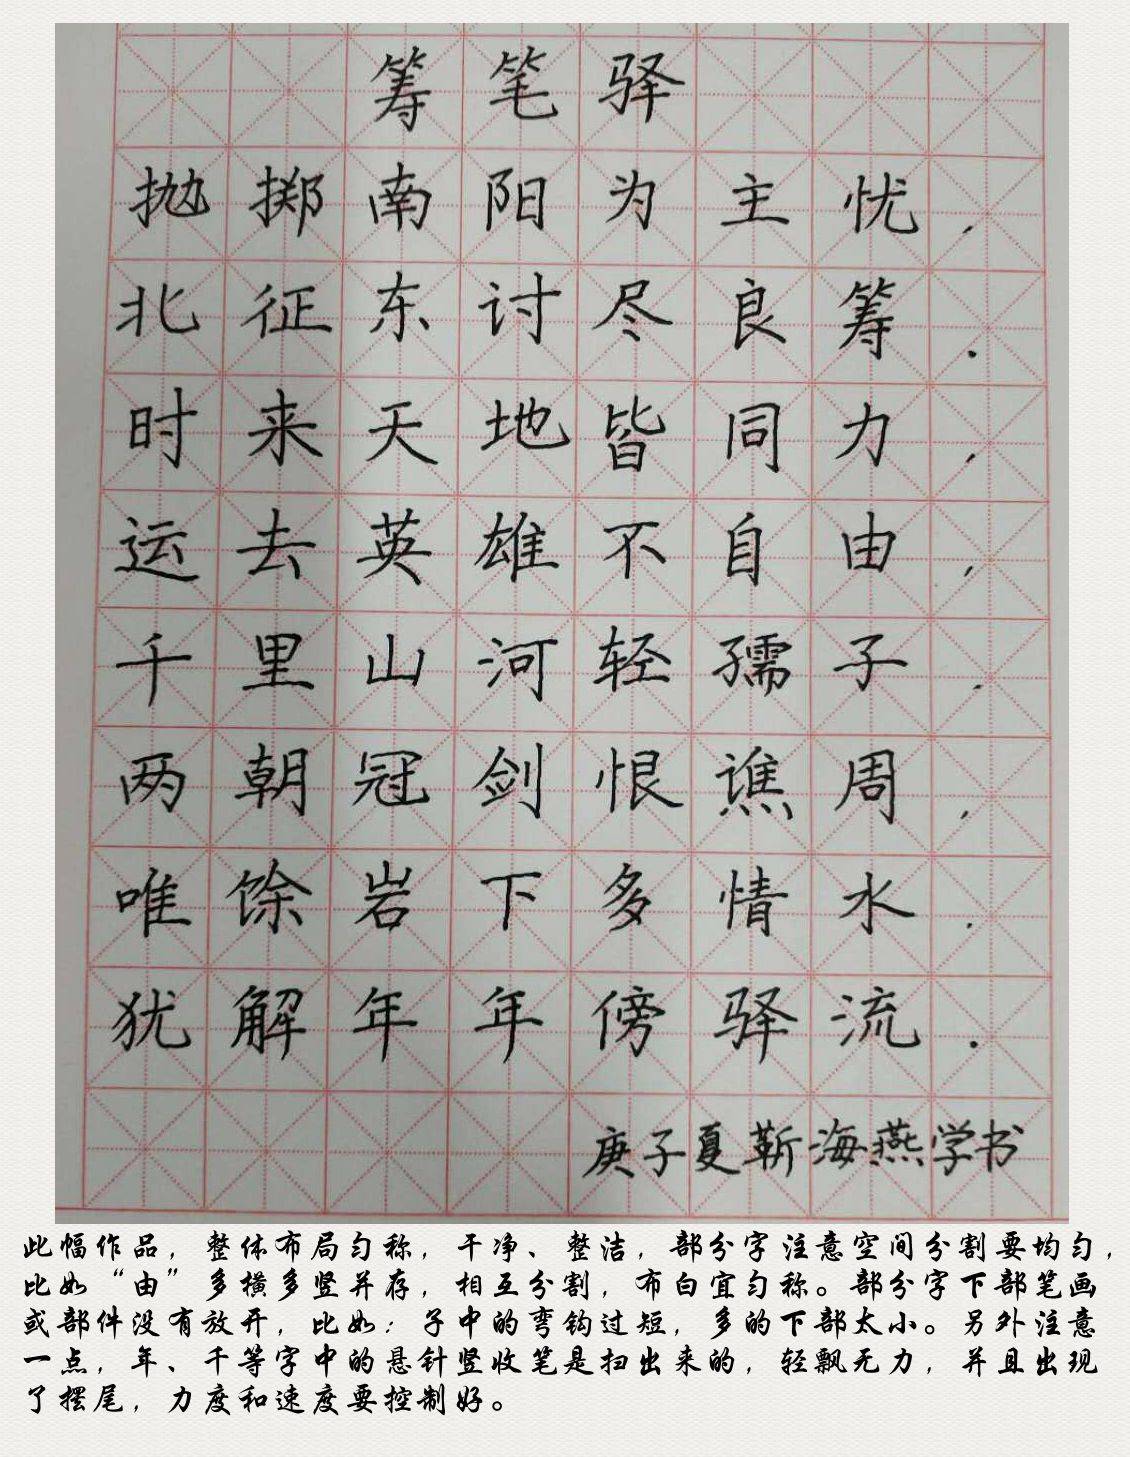 筹笔驿
抛掷南阳为主忧，
北征东讨尽良筹.
时来天地皆同力，
运去英雄不自由，
千里山河轻孺子.
两朝冠剑恨谯周，
唯馀岩下多情水.
犹解年年傍驿流.
庚子夏靳海燕学书
此幅作品，整体布局匀称，干净、整洁，部分字注意空间分割要均匀，
比如“由”多横多竖并存，相互分割，布白宜匀称。部分字下部笔画
或部件没有放开，比如：子中的弯钩过短，多的下部太小。另外注意
一点，年、千等字中的悬针竖收笔是扫出来的，轻飘无力，并且出现
了摆尾，力度和速度要控制好。